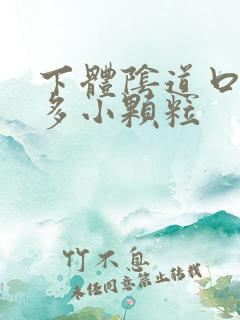 下體陰道口
多小顆粒
竹不息
未經同意禁止轉載